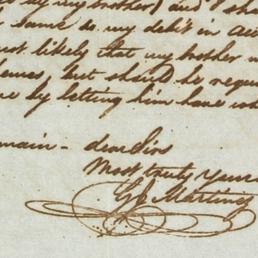 by my brother) and I sho
same to my debit in acc
ost likely that my brother w
hemes, but should he requ
me by letting him have wh
main - dear Sirs
Most truly yours
Martinez